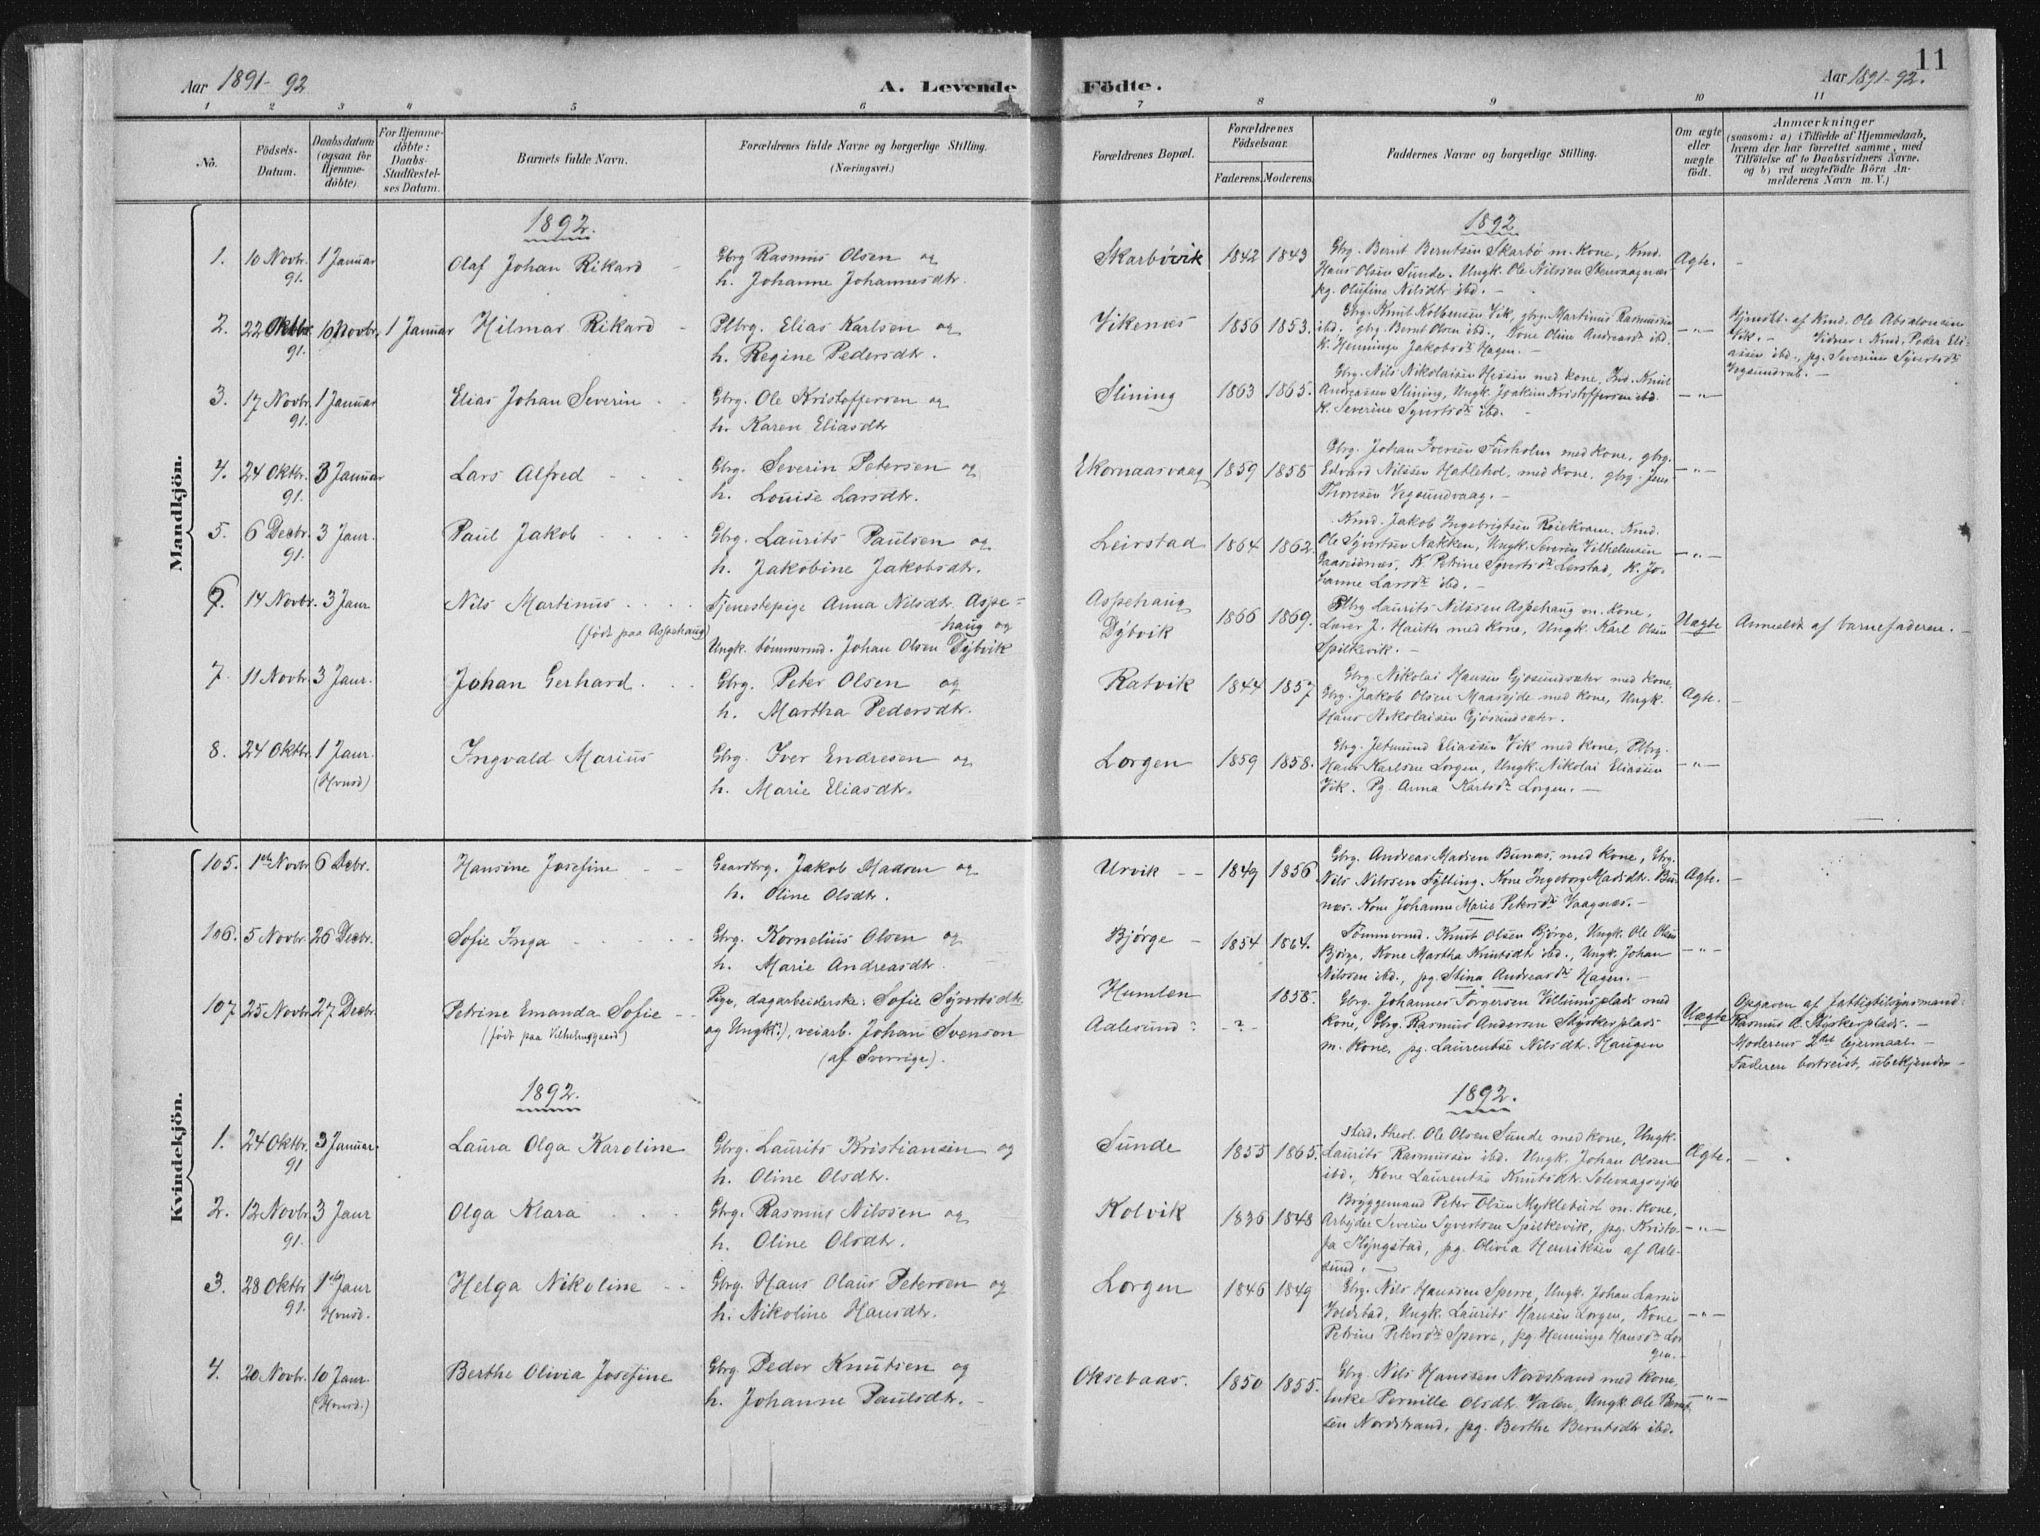 Aar 1891-92
A. Levende
1 2 3 4 5 6
Nô.
Födsels-
Datum.
Daabsdatum
(ogsaa för
Hjemme-
döbte)
For Hjemme-
döbte:
Daabs-
Stadfæstel-
ses Datum.
Barnets fulde Navn.
Forældrenes fulde Navne og borgerlige Stilling.
(Næringsvei.)
Mandkjön.
1892.
1. 10 Novbr. 1 Januar Olaf Johan Rikard - Gbrg Rasmus Olsen og
91. h. Johanne Johannesdtr.
2. 22 Oktbr. 10 Novbr. 1 Januar Hilmar Rikard - Plbrg. Elias Karlsen og
91. h. Regine Pedersdtr.
3. 17 Novbr. 1 Januar Elias Johan Severin - - Gbrg. Ole Kristoffersen og
91. h. Karen Eliasdtr
4. 24 Oktbr. 3 Januar Lars Alfred - - - Gbrg. Severin Petersen og
91. h. Louise Larsdtr.
5. 6 Decbr. 3 Janr. Paul Jakob - - - - Gbrg. Laurits Paulsen og
91. h. Jakobine Jakobsdtr.
6. 14 Novbr. 3 Janr Nils Martinus - - - - Tjenestepige Anna Nilsdtr. Aspe=
(født paa Aspehaug) haug og
Ungk. tømmermd. Johan Olsen Dybvik
7. 11 Novbr. 3 Janr. Johan Gerhard - - - Gbrg. Peter Olsen og
h. Martha Pedersdtr.
8. 24 Oktbr. 1 Janr. Ingvald Marius Gbrg. Iver Endresen og
(Hvnsd) h. Marie Eliasdtr.
Kvindekjön.
105. 1ste Novbr. 6 Decbr. Hansine Josefine - - Gaardbrg. Jakob Madsen og
h. Oline Olsdtr.
106. 5 Novbr. 26 Decbr. Sofie Inga - - - - - Gbrg. Kornelius Olsen og
h. Marie Andreasdtr.
107. 25 Novbr. 27 Decbr. Petrine Emanda Sofie - - Pige, dagarbeiderske: Sofie Syvertsdtr
(født paa Vilhelmsgaard) og Ungk(?), veiarb. Johan Svenson
(af Sverrige).
1892.
1. 24 Oktbr. 3 Januar. Laura Olga Karoline Gbrg. Laurits Kristiansen og
91 h. Oline Olsdtr.
2. 12 Novbr. 3 Janr Olga Klara - - - Gbrg. Rasmus Nilssen og
91. h. Oline Olsdtr.
3. 28 Oktbr. 1ste Janr Helga Nikoline - - Gbrg. Hans Olaus Petersen og
91. Hvnsd. h. Nikoline Hansdtr.
4. 20 Novbr. 10 Janr. Berthe Olivia Josefine Gbrg. Peder Knutsen og
(Hvnsd.) h. Johanne Paulsdtr. -
11
Födte.
Aar 1891-92.
7 8 9 10 11
Forældrenes Bopæl.
Forældrenes
Födselsaar.
Faderens. Moderens.
Faddernes Navne og borgerlige Stilling.
Om ægte
eller
uægte
födt.
Anmærkninger
(saasom: a) i Tilfælde af Hjemmedaab,
hvem der har forrettet samme, med
Tilföielse af to Daabsvidners Navne.
og b) ved uægtefödte Börn An-
melderens Navn m. V.)
1892
Gbrg. Bernt Berntsen Skarbø m. Kone, Kmd.
Skarbøvik 1842 1843 Hans Olsen Sunde. Ungk. Ole Nilssen Stenvaagnæs Ægte. -
pg. Olufine Nilsdtr ibd. -
Gbrg. Knut Kolbensen Vik, gbrg. Martinus Rasmussen
Vikenæs 1856 1853. ibd. gbrg. Bernt Olsen ibd., Kone Oline Andreasdr ibd. -"- Hjmdbt. af Kmd. Ole Absalonsen
K. Henninge Jakobsdr Hagen. - Vik. - Vidner: Kmd. Peder Eli-
assen ibd., pg. Severine Syvertsdr
Vegsundvik. -
Gbrg. Nils Nikolaisen Hessen med Kone, Ind. Knut
Slining 1863 1865. Andreassen Slining, Ungk. Joakim Kristoffersen ibd. -"-
K. Severine Syvertsdr ibd. -
Gbrg. Johan Iversen Furholm med Kone, gbrg.
Ekornaasvaag 1859 1858 Edvard Nilssen Hatlehol, med Kone, gbrg. Jens -"-
Thoresen Vegsundvaag. -
Kmd. Jakob Ingebrigtsen Reiekvam, Kmd.
Leirstad 1864 1862. Ole Syvertsen Nakken, Ungk. Severin Vilhelmsen -"-
Gaaseidnæs, K. Petrine Syvertsdr Lerstad, K. Jo-
hanne Larsdr ibd. -
Aspehaug Plbrg Laurits Nilssen Aspehaug m. Kone,
Dybvik 1866 1869. Lærer J. Hauth med Kone, Ungk. Karl Olsen Uægte Anmeldt af barnefaderen. -
Spilkevik. -
Gbrg. Nikolai Hansen Gjøsundsæter med Kone,
Ratvik 1844 1857 Gbrg. Jakob Olsen Maaseide med Kone, Ungk. Ægte. -
Hans Nikolaisen Gjøsundsæter.
Gbrg. Jetmund Eliassen Vik med Kone, Plbrg.
Lorgen 1859 1858. Hans Karlsen Lorgen, Ungk. Nikolai Eliassen -"-
Vik. Pg. Anna Karlsdr Lorgen. -
Gbrg. Andreas Madsen Bunæs, med Kone, Gbrg.
Urvik - - 1849 1856 Nils Nilssen Fylling. Kone Ingeborg Madsdtr. Bu- Ægte. -
næs. Kone Johanne Marie Petersdr Vaagnæs. -
Tømmermd. Knut Olsen Bjørge, Ungk. Ole Olsen
Bjørge - 1854 1864. Bjørge, Kone Martha Knutsdtr ibd., Ungk. Johan -"-
Nilssen ibd., pg. Stina Andreasdr Hagen. -
Humlen 1858. Gbrg. Johannes Torgersen Villumsplads med Opgaven af fattigtilsynsmand:
Aalesund? -?- Kone, Gbrg. Rasmus Andersen Slyskerplads Uægte Rasmus A. Slyskerplads. -
m. Kone, pg. Laurentse Nilsdtr. Haugen Moderens 2det leiermaal. -
Faderen bortreist, ubekjendt -
1892.
stud. theol. Ole Olsen Sunde med Kone, Ungk.
Sunde 1855 1865. Laurits Rasmussen ibd. Ungk. Johan Olsen Ægte. -
ibd., Kone Laurentse Knutsdtr. Solevaagseide
Bryggemand Peter Olsen Myklebust m. Kone,
Kolvik 1836 1848 Arbeider Severin Syvertsen Spilkevik, pg. Kristo- -"-
fa Slyngstad, pg. Olivia Henriksen af Aale-
sund. -
Gbrg. Nils Hanssen Sperre, Ungk. Johan Larsen
Lorgen 1846 1849 Voldstad, Ungk. Laurits Hansen Lorgen, Kone -"-
Petrine Petersdr Sperre, pg. Henninge Hansdr Lor
gen. -
Gbrg Nils Hanssen Nordstrand med Kone,
Oksebaas. 1850 1855. Enke Pernille Olsdtr Valen, Ungk. Ole Bernt- -"-
sen Nordstrand, pg. Berthe Berntsdtr ibd.